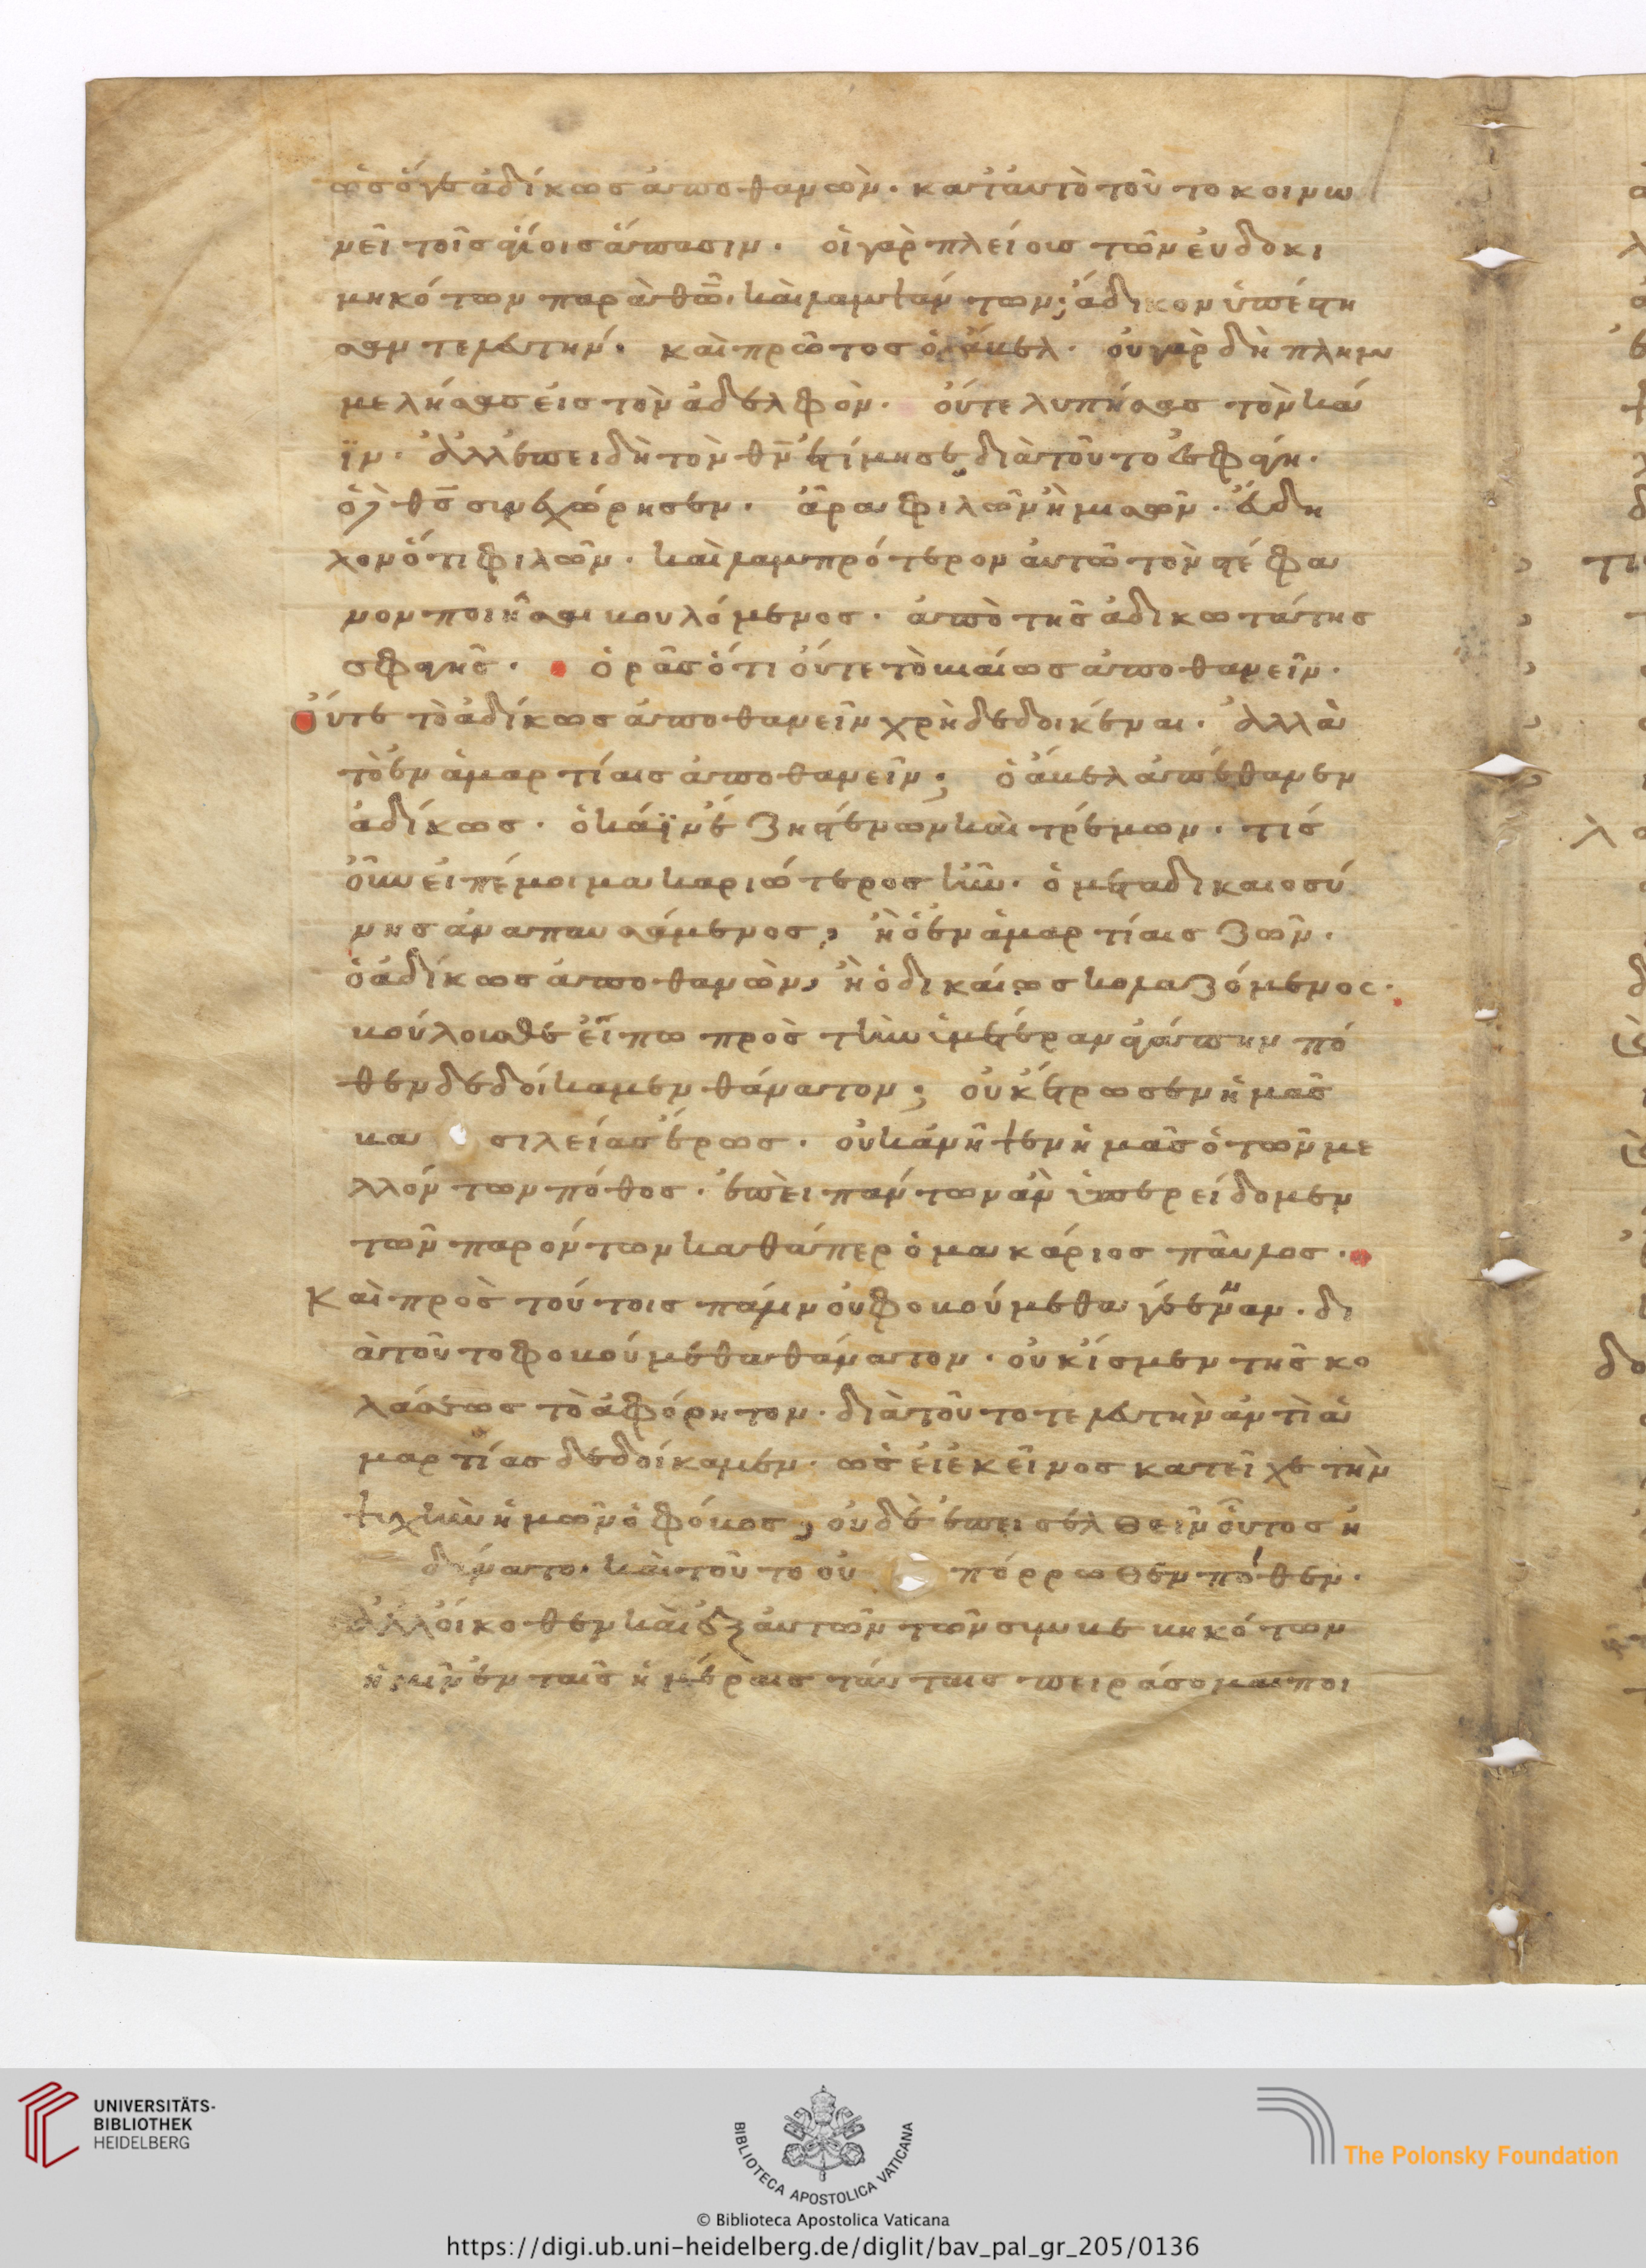 ὡς ὅγε ἀδίκως ἀποθανὼν. κατ' αὐτὸ τοῦτο κοινω
νεῖ τοῖς ἁγίοις ἅπασιν. οἱ γὰρ πλείους τῶν εὐδοκι
μηκότων παρὰ θω̅. καὶ λαμψάντων, ἄδικον ὑπέστη
σαν τελευτήν. καὶ πρῶτος ὁ ἄβελ. οὐ γὰρ δὴ πλημ
μελήσας εἰς τὸν ἀδελφὸν. οὔτε λυπήσας τὸν κά
ϊν. ἀλλ' ἐπειδὴ τὸν θν̅ ἐτίμησε, διὰ τοῦτο ἐσφάγη.
ὁ δὲ θς̅ συνεχώρησεν. ἆρα φιλῶν ἢ μισῶν. εὔδη
λον ὅτι φιλῶν. καὶ λαμπρότερον αὐτῶ τὸν στέφα
νον ποιῆσαι βουλόμενος. ἀπὸ τῆς ἀδικωτάτης
σφαγῆς. ὁρᾶς ὅτι οὔτε τὸ βιαίως ἀποθανεῖν.
οὔτε τὸ ἀδίκως ἀποθανεῖν χρὴ δεδοικέναι. ἀλλὰ
τὸ ἐν ἁμαρτίαις ἀποθανεῖν; ὁ ἄβελ ἀπέθανεν
ἀδίκως. ὁ κάϊν ἔζη στένων καὶ τρέμων. τίς
οὖν εἰπέ μοι μακαριώτερος ἦν. ὁ μετὰ δικαιοσύ
νης ἀναπαυσάμενος, ἢ ὁ ἐν ἁμαρτίαις ζῶν.
ὁ ἀδίκως ἀποθανὼν, ἢ ὁ δικαίως κολαζόμενος.
βούλεσθε εἴπω πρὸς τὴν ὑμετέραν ἀγάπην πό
θεν δεδοίκαμεν θάνατον; οὐκ ἔτρωσεν ἡμᾶς
βα σιλείας ἔρως. οὐκ ἀνῆψεν ἡμᾶς ὁ τῶν με
λλόντων πόθος. ἐπεὶ πάντων ἂν ὑπερείδομεν
τῶν παρόντων καθάπερ ὁ μακάριος παῦλος.
Καὶ πρὸς τούτοις πάλιν οὐ φοβούμεθα γέενναν. δι
ὰ τοῦτο φοβούμεθα θάνατον. οὐκ ἴσμεν τῆς κο
λάσεως τὸ ἀφόρητον. διὰ τοῦτο τελευτὴν ἀντὶ ἁ
μαρτίας δεδοίκαμεν. ὡς εἰ ἐκεῖνος κατεῖχε τὴν
ψυχὴν ἡμῶν ὁ φόβος, οὐδὲ ἐπεισελθεῖν οὗτος ἠ
δύνατο. καὶ τοῦτο οὐ πόρρωθέν ποθεν.
ἀλλ' οἴκοθεν καὶ ἐξ αὐτῶν τῶν συμβεβηκότων
ἡμῖν ἐν ταῖς ἡμέραις ταύταις πειράσομαι ποι
UNIVERSITÄTS-
BIBLIOTHEK
HEIDELBERG
BIBLIOTECA APOSTOLICA VATICANA
The Polonsky Foundation
© Biblioteca Apostolica Vaticana
https://digi.ub.uni-heidelberg.de/diglit/bav_pal_gr_205/0136